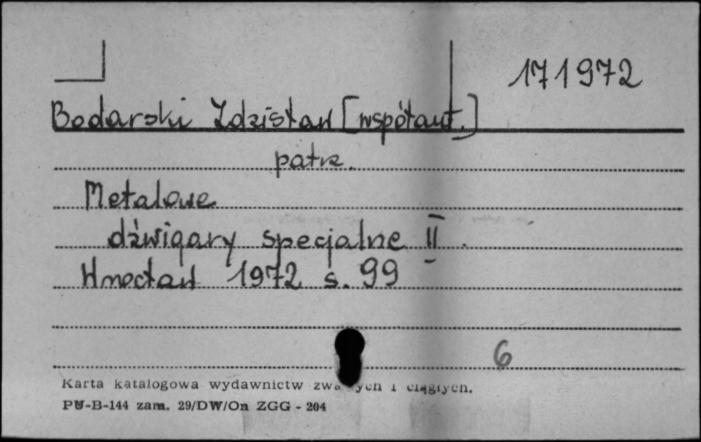 171972
Bodarski Zdzisław [współaut.]
patrz.
Metalowe
dźwigary specjalne II.
Wrocław 1972 s. 99
6
Karta katalogowa wydawnictw i ciągłych.
PU-B-144 zam. 29/DW/On ZGG - 204